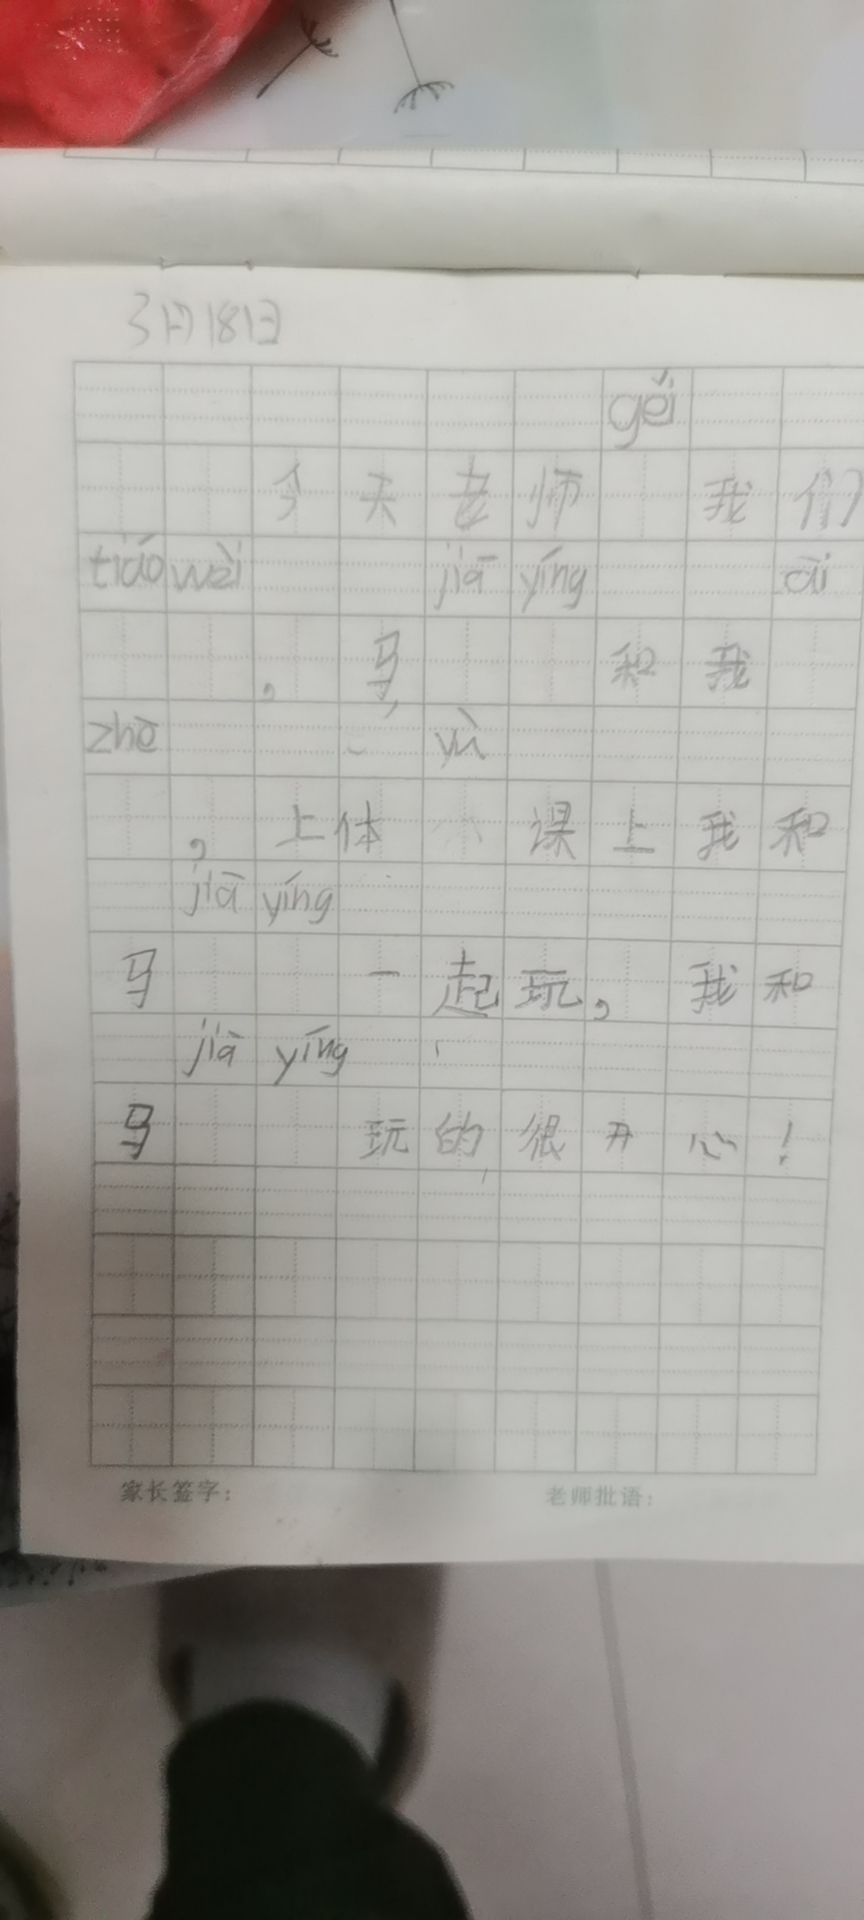 3月18日
gěi
今天老师 我们
tiáo wèi jiā yíng āi
，马 和我
zhē yù
，上体 课上我和
jiā yíng
马 一起玩，我和
jiā yíng
马 玩的很开心！
家长签字： 老师批语：